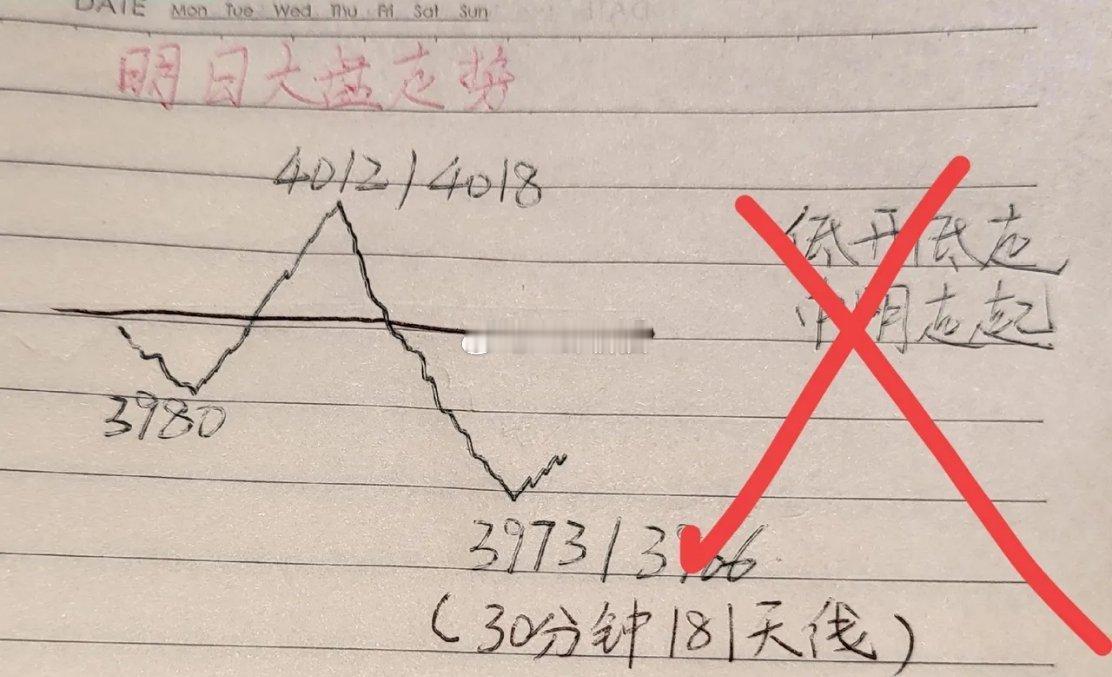 DATE Mon Tue Wed Thu Fri Sat Sun
明日大盘走势
4012/4018
低开低走
明走起
3980
3973/3966
(30分钟181天线)